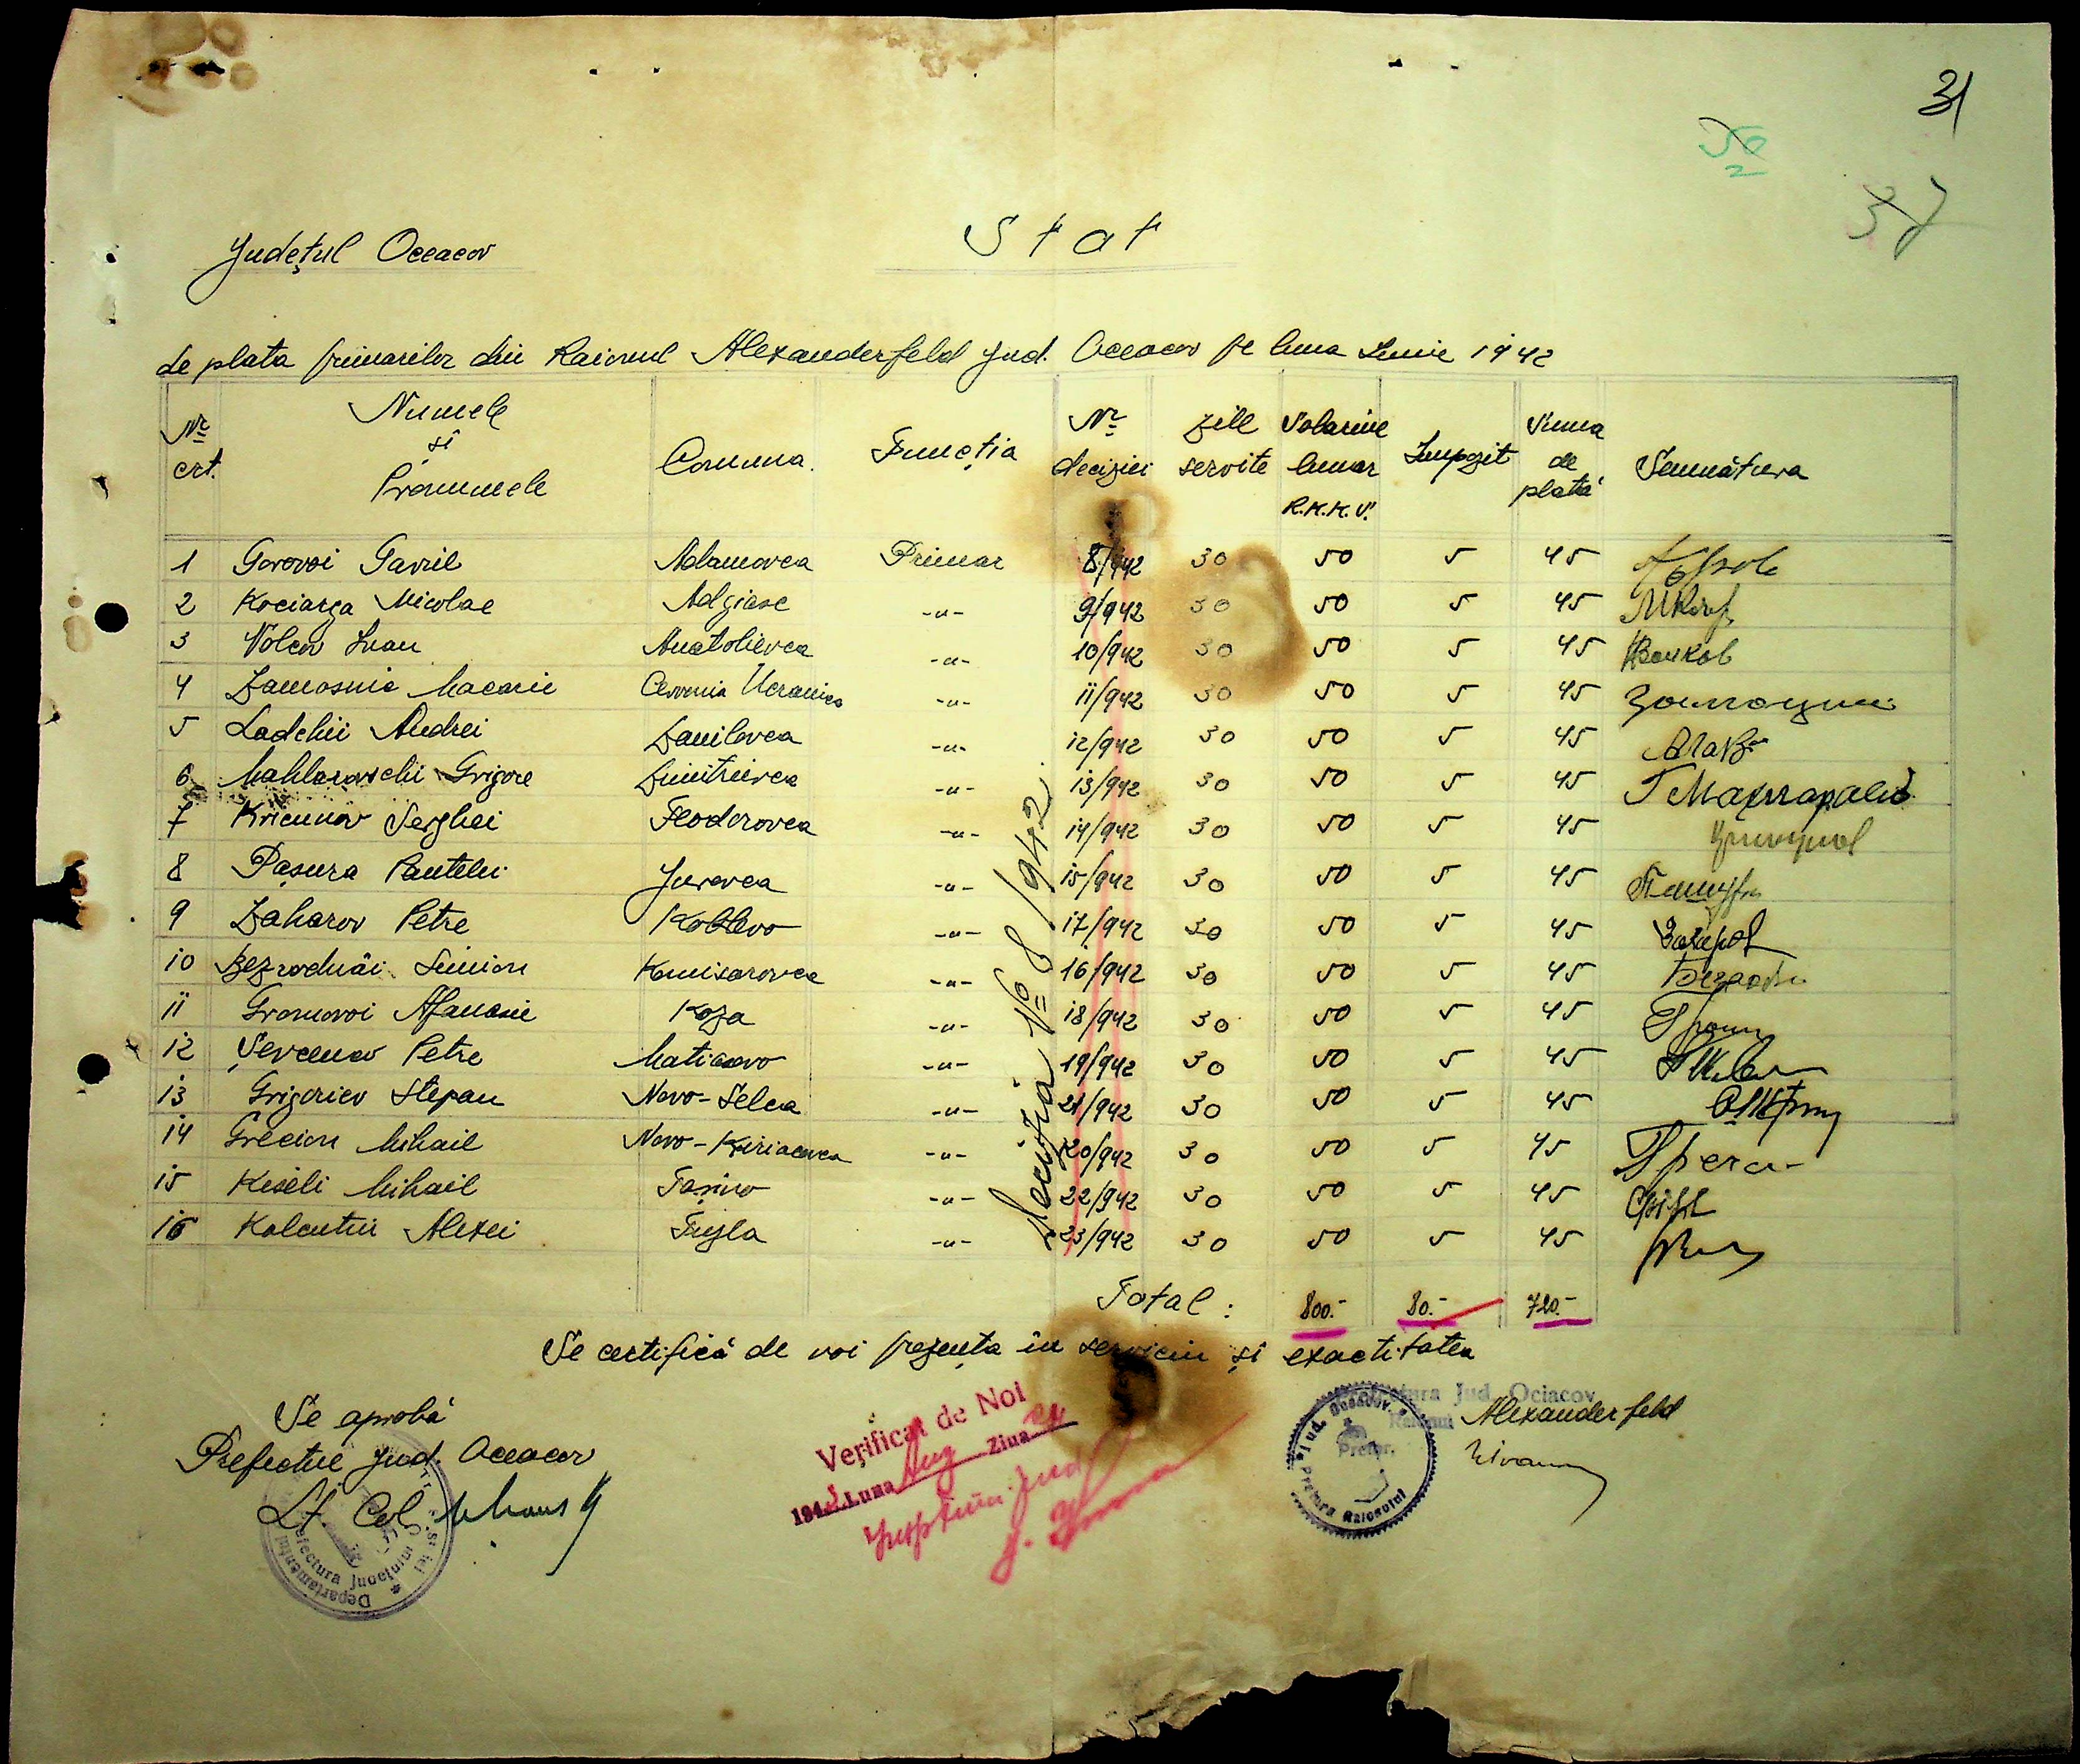 31
37
Județul Oceacov
Stat
de plata primarilor din Raionul Alexanderfeld jud. Oceacov pe luna Iunie 1942
Nr crt. Numele și Pronumele Comuna. Funcția Nr deciziei Zile servite Solariul lunar R.K.K.S. Impozit Suma de plată Semnătura
1 Gorovoi Gavril Adamovca Primar 8/942 30 50 5 45
2 Kociarga Nicolae Adgiase -"- 9/942 30 50 5 45
3 Volcov Ivan Anatolievca -"- 10/942 30 50 5 45 Волков
4 Zamosnic Macarie Cervonia Ucrainca -"- 11/942 30 50 5 45
5 Ladchii Andrei Danilovca -"- 12/942 30 50 5 45
6 Mahlarovschi Grigore Dimitrievca -"- 13/942 30 50 5 45
7 Kricunov Serghei Feodorovca -"- 14/942 30 50 5 45
8 Pașura Pantelei Jurovca -"- 15/942 30 50 5 45
9 Zaharov Petre Koblevo -"- 17/942 30 50 5 45 Захаров
10 Bezrodnâi Simion Komisarovca -"- 16/942 30 50 5 45
11 Gromovoi Afanasie Koza -"- 18/942 30 50 5 45
12 Șevcenco Petre Matiasovo -"- 19/942 30 50 5 45
13 Grigoriev Stepan Novo-Selca -"- 21/942 30 50 5 45
14 Grecion Mihail Novo-Kiriacovca -"- 20/942 30 50 5 45
15 Kiseli Mihail Tașino -"- 22/942 30 50 5 45
16 Kalcutin Alexei Tuzla -"- 23/942 30 50 5 45
Decizia No 8/1942
Total: 800.- 80.- 720.-
Se certifică de noi prezența în serviciu și exactitatea
Se aprobă
Prefectul Jud. Oceacov
Lt. Col.
Verificat de Noi
194 Luna Aug Ziua
Pretura Jud. Ociacov
Raionul Alexanderfeld
Jud. Oceacov.
Pretor.
Pretura Raionului
Prefectura Județului
Departamentul